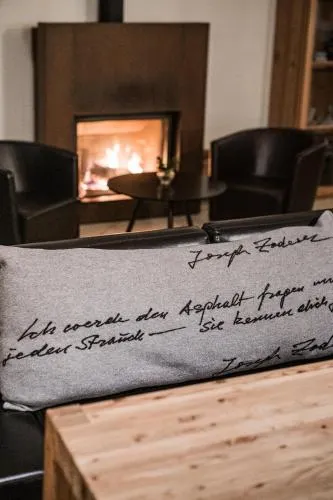 Joseph Zoderer
Ich werde den Asphalt fragen un
jeden Strauch — sie kennen dich
Joseph Zode